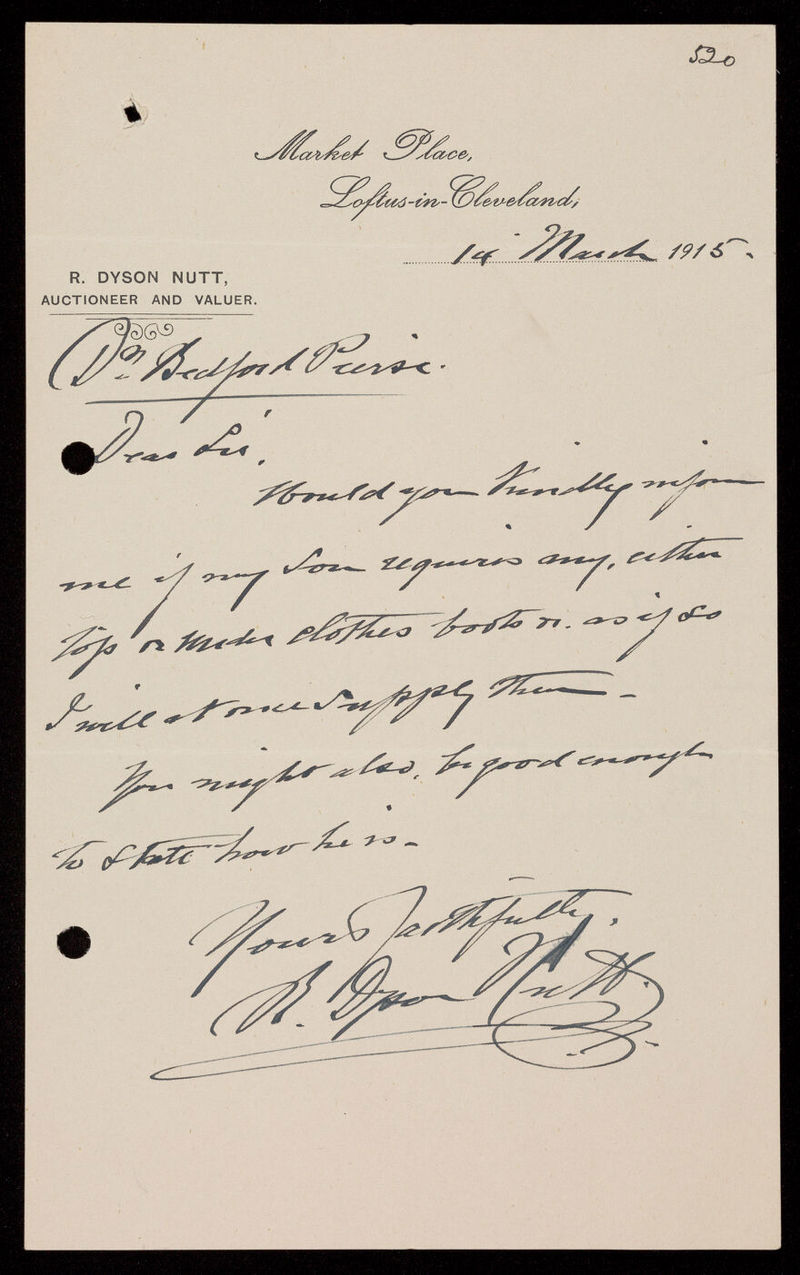 520
Market Place,
Loftus-in-Cleveland,
14 March 1915.
R. DYSON NUTT,
AUCTIONEER AND VALUER.
Dr Bedford Pierse.
Dear Sir,
Would you kindly inform
me if my Son requires any, either
top or under clothes boots &c. as if so
I will at once supply them -
You might also, be good enough
to State how he is -
Yours faithfully,
R. Dyson Nutt.